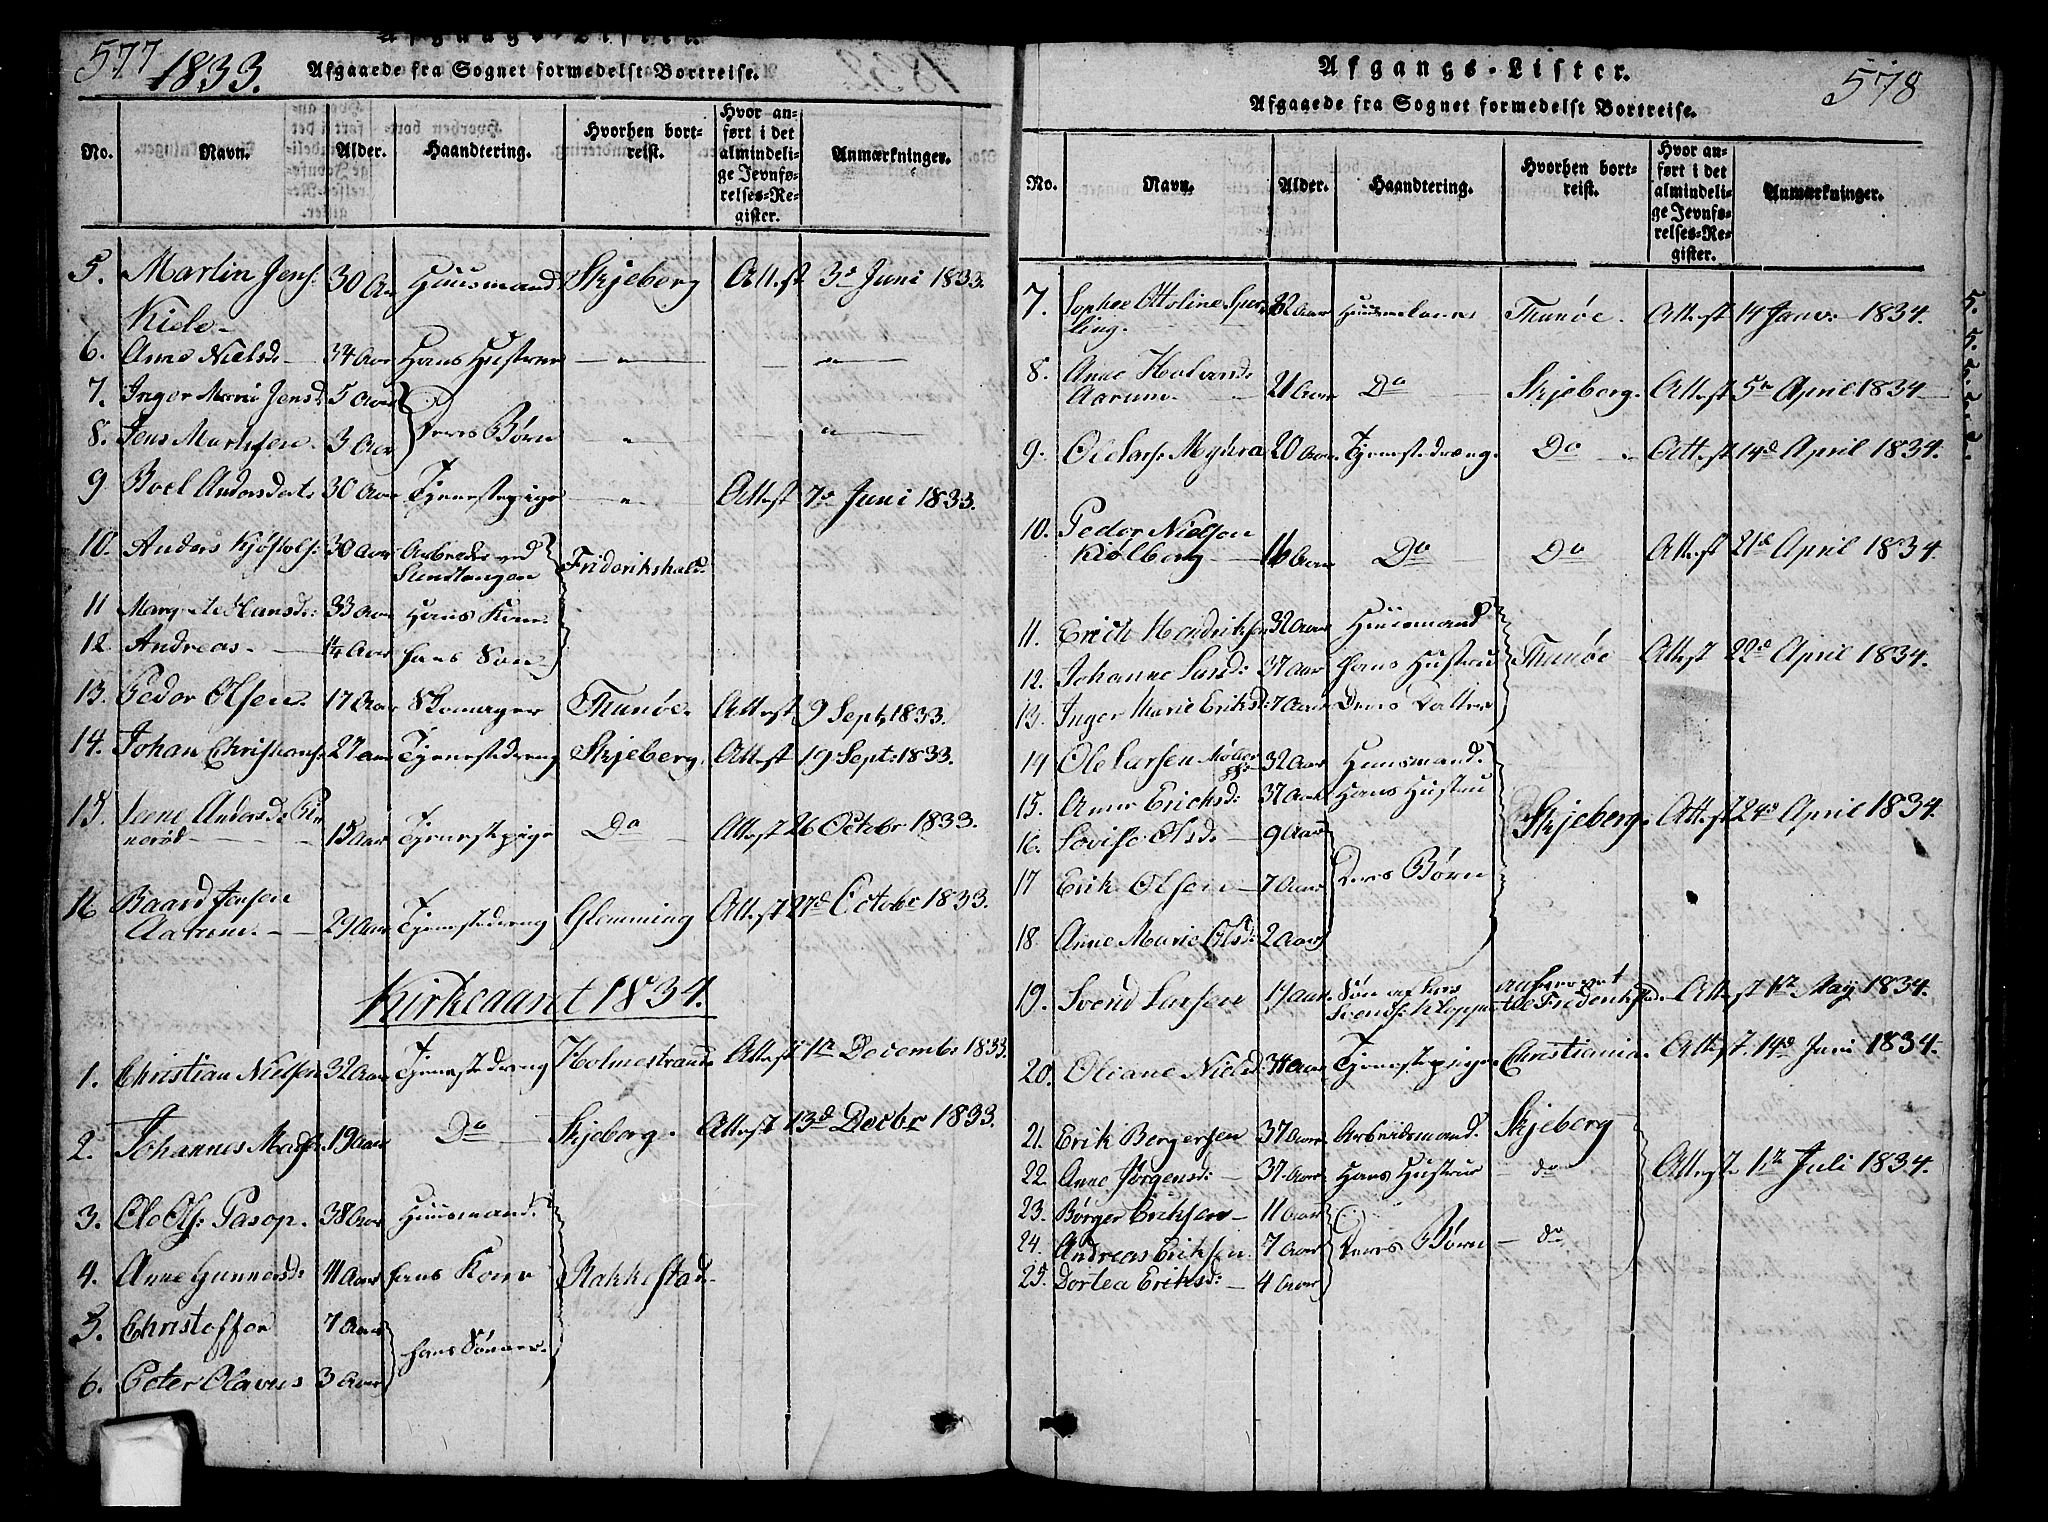 577
1833.
Afgangs-Lister.
Afgaaede fra Sognet formedelst Bortreise.
No. Navn. Alder. Haandtering. Hvorhen bortreist. Hvor anført i det almindelige Jevnførelses-Register. Anmærkninger.
5. Martin Jens: 30 Aar Huusmand Skjeberg Attest 3d Juni 1833.
Kiele
6. Anne Nielsd: 34 Aar Hans Hustrue " "
7. Inger Marie Jensd: 5 Aar
8. Jens Martinsen. 3 Aar Deres Børn " "
9 Boel Andersdatt 30 Aar Tjenestepige " Attest 7d Juni 1833.
10. Anders Kjøstols: 30 Aar Arbeider ved Fridrikshald
11 Margrete Hansd: 33 Aar Hans Kone
12. Andreas. 1/4 Aar hans Søn
13. Peder Olsen. 17 Aar Skomager Thunøe. Attest 9 Sept: 1833.
14. Johan Christians: 27 aar Tjenestedreng Skjeberg. Attest 19 Sept: 1833.
15. Anders d:
nerød 15 Aar Tjenestepige Do Attest 26 Octobr 1833.
16 Baard Jensen
Aarum. 29 Aar Tjenestedreng Glemming Attest 27d Octobr 1833.
Kirkeaaret 1834.
1. Christian Nielsen 32 Aar Tjenestedreng Holmestrand Attest 1n Decembr 1833.
2. Johannes Mads: 19 aar Do Skjeberg. Attest 13d Decbr 1833.
3. Ole Ols: Pasop. 38 Aar Huusmand.
4. Anne Gunnersd: 41 Aar hans Kone Rakkestad
5. Christoffer 7 Aar
6. Peter Olavus 3 Aar hans Sønner.
578
Afgangs-Lister.
Afgaaede fra Sognet formedelst Bortreise.
No. Navn. Alder. Haandtering. Hvorhen bortreist. Hvor anført i det almindelige Jevnførelses-Register. Anmærkninger.
7. Sophie Ottoline Sper
ling. 32 Aar Thunøe. Attest 14 Janv: 1834.
8. Anne Halvorsd:
Aarum. 21 Aar Do Skjeberg. Attest 5te April 1834
9. Ole Lars: 20 Aar Tjenestedreng. Do Attest 14d April 1834.
10. Peder Nielsen
Kiølberg 16 Aar Do Do Attest 21d April 1834.
11. Erich Hendriksen 32 Aar Huusmand
12. Johanne 37 Aar hans Hustrue Thunøe Attest 22d April 1834.
13. Inger Marie Eriksd: 7 Aar Deres Datter
14 Ole Larsen Møller 32 Aar Huusmand.
15. Anne Ericksd: 37 Aar Hans Hustru
16. Lovise Olsd: 9 Aar Skjeberg. Attest 24d April 1834.
17 Erik Olsen 7 Aar Deres Børn
18. Anne Marie Olsd: 2 Aar
19. Svend Larsen 17 aar Søn af Lars
Svends: Kloppe til Fredrikstad. Attest 1n May 1834.
20. Oliane Nielsd: 34 Aar Tjenestepige Christiania. Attest. 14d Juni 1834.
21. Erik Bergersen 37 Aar Arbeidsmand. Skjeberg
22. Anne Jørgensd: 37 Aar Hans Hustrue do Attest 1n Juli 1834.
23. Børger Eriksen 11 Aar
24. Andreas Eriksen. 7 Aar Deres Børn do
25. Dortea Eriksd: 4 Aar